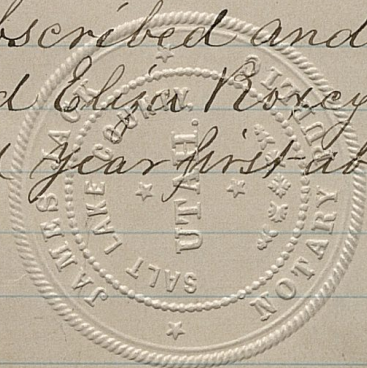 bscribed and
d Eliza Roxcy
d year first ab
JAMES JACK
NOTARY PUBLIC
SALT LAKE COUNTY
UTAH.